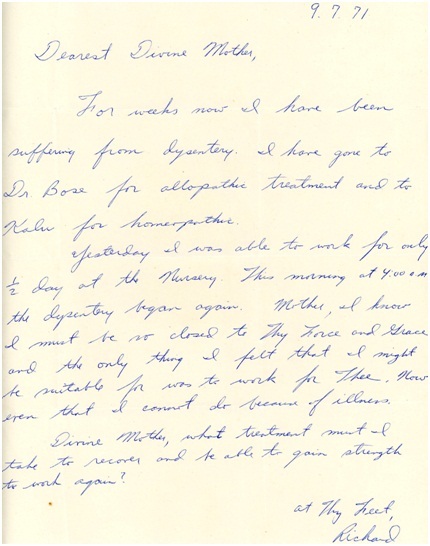 9.7.71
Dearest Divine Mother,
For weeks now I have been
suffering from dysentery. I have gone to
Dr. Bose for allopathic treatment and to
Kalu for homeopathic.
Yesterday I was able to work for only
½ day at the Nursery. This morning at 4:00 a.m
the dysentery began again. Mother, I know
I must be so closed to Thy Force and Grace
and the only thing I felt that I might
be suitable for was to work for Thee. Now
even that I cannot do because of illness.
Divine Mother, what treatment must I
take to recover and be able to gain strength
to work again?
at Thy Feet,
Richard